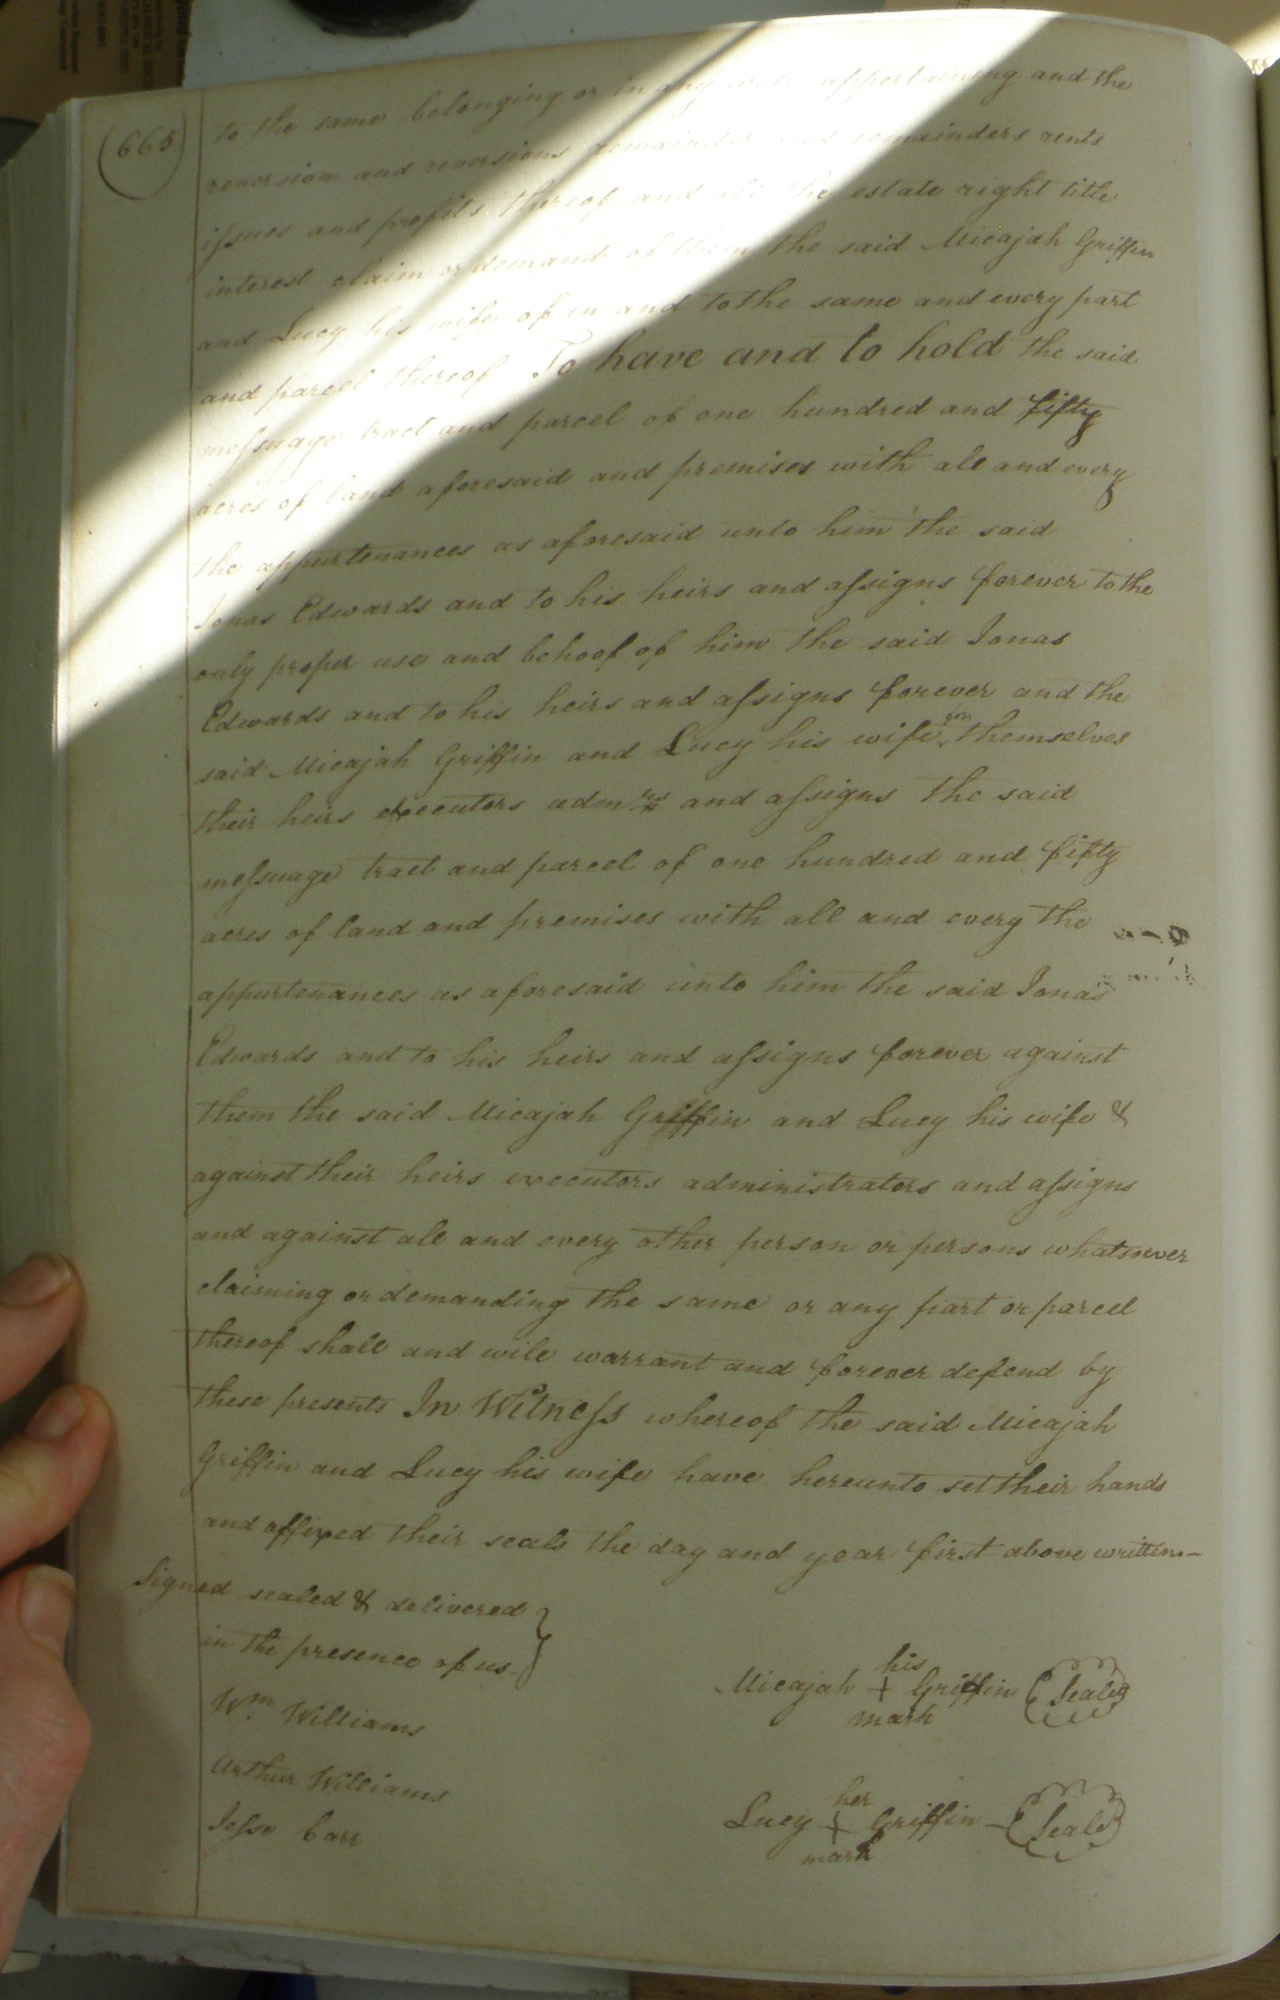 (665)
to the same belonging or in any wise appertaining and the
reversion and reversions remainder and remainders rents
issues and profits thereof and all the estate right title
interest claim or demand of them the said Micajah Griffin
and Lucy his wife of in and to the same and every part
and parcel thereof To have and to hold the said
messuage tract and parcel of one hundred and fifty
acres of land aforesaid and premises with all and every
the appurtenances as aforesaid unto him the said
Jonas Edwards and to his heirs and assigns forever to the
only proper use and behoof of him the said Jonas
Edwards and to his heirs and assigns forever and the
said Micajah Griffin and Lucy his wife for themselves
their heirs executors admrs and assigns the said
messuage tract and parcel of one hundred and fifty
acres of land and premises with all and every the
appurtenances as aforesaid unto him the said Jonas
Edwards and to his heirs and assigns forever against
them the said Micajah Griffin and Lucy his wife &
against their heirs executors administrators and assigns
and against all and every other person or persons whatsoever
claiming or demanding the same or any part or parcel
thereof shall and will warrant and forever defend by
these presents In Witness whereof the said Micajah
Griffin and Lucy his wife have hereunto set their hands
and affixed their seals the day and year first above written
Signed sealed & delivered
in the presence of us
Wm. Williams
Arthur Williams
Jesse Carr
his
Micajah + Griffin (Seal)
mark
her
Lucy + Griffin (Seal)
mark